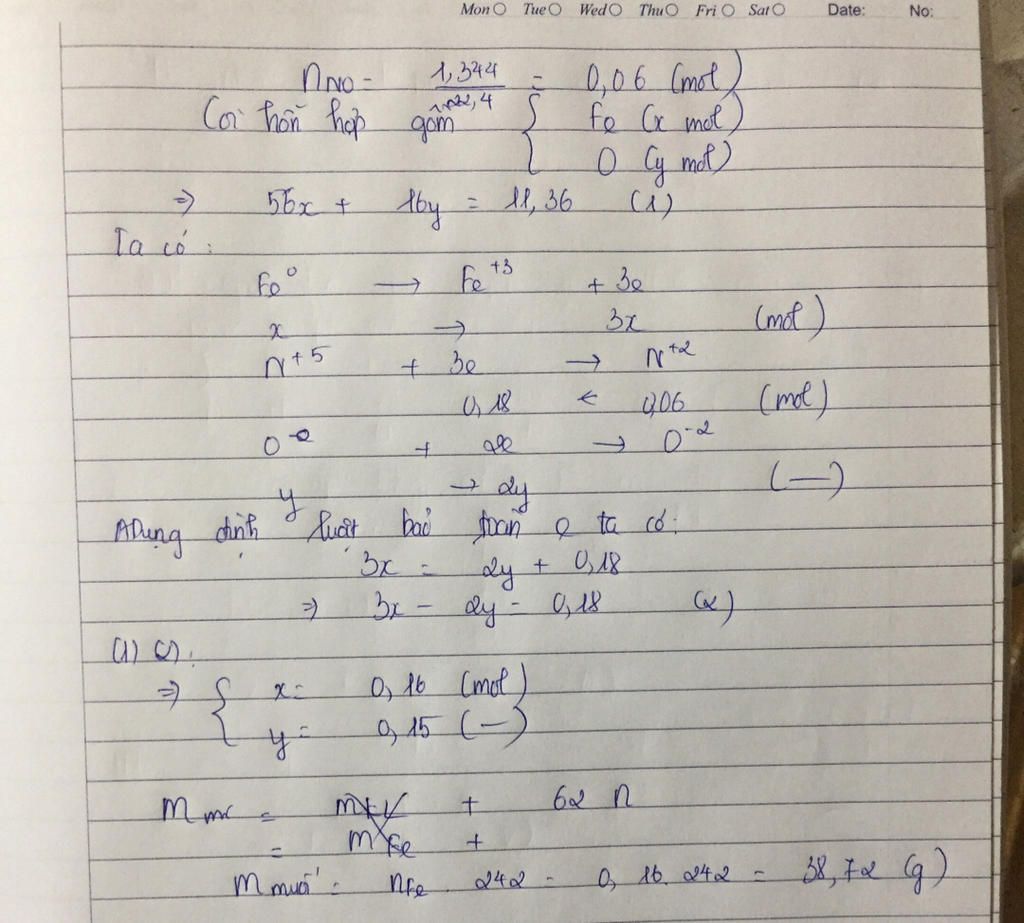 Mon Tue Wed Thu Fri Sat Date: No:
nNO = 1,344 / 22,4 = 0,06 (mol)
Coi hỗn hợp gồm { Fe (x mol)
O (y mol)
=> 56x + 16y = 11,36 (1)
Ta có :
Fe⁰ → Fe⁺³ + 3e
x → 3x (mol)
N⁺⁵ + 3e → N⁺²
0,18 ← 0,06 (mol)
O + 2e → O⁻²
y → 2y (—)
ADụng định luật bảo toàn e ta có:
3x = 2y + 0,18
=> 3x - 2y = 0,18 (2)
(1) (2) :
=> { x = 0,16 (mol)
y = 0,15 (—)
m = + 62 n
= mFe +
m muối = nFe . 242 = 0,16. 242 = 38,72 (g)